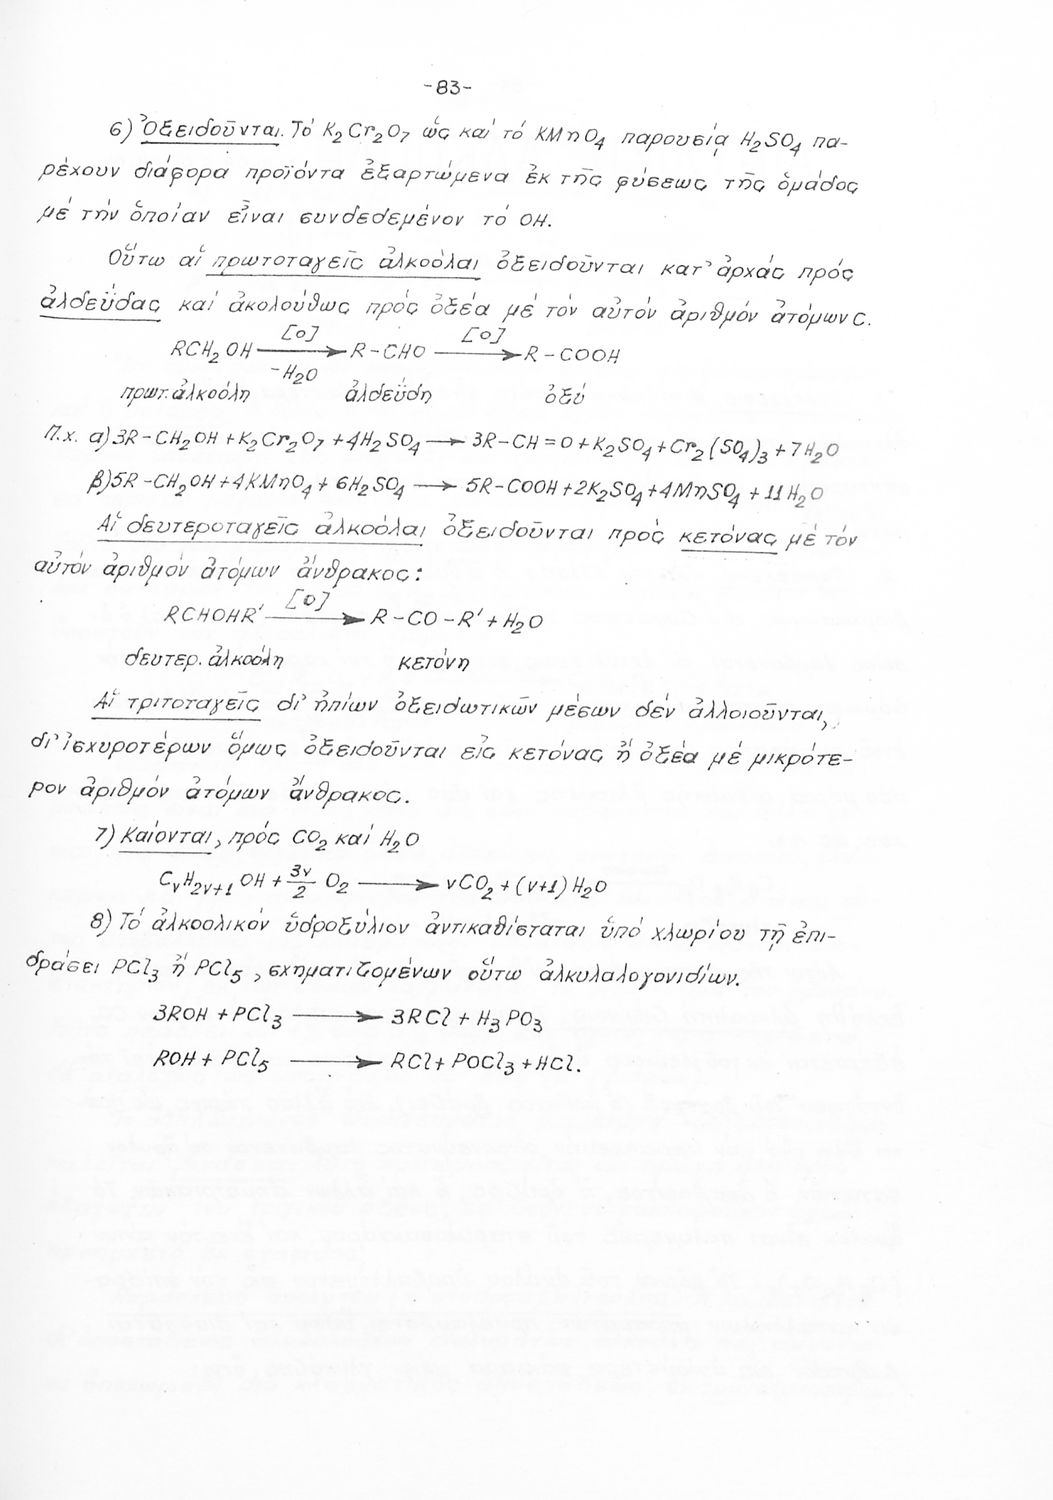 -83-
6) Ὀξειδοῦνται. Τό K₂Cr₂O₇ ὡς καί τό KMnO₄ παρουσίᾳ H₂SO₄ πα-
ρέχουν διάφορα προϊόντα ἐξαρτώμενα ἐκ τῆς φύσεως τῆς ὁμάδος
μέ τήν ὁποίαν εἶναι συνδεδεμένον τό OH.
Οὕτω αἱ πρωτοταγεῖς ἀλκοόλαι ὀξειδοῦνται κατ' ἀρχάς πρός
ἀλδεΰδας καί ἀκολούθως πρός ὀξέα μέ τόν αὐτόν ἀριθμόν ἀτόμων C.
[O] [O]
RCH₂OH ⟶ R-CHO ⟶ R-COOH
-H₂O
πρωτ. ἀλκοόλη ἀλδεΰδη ὀξύ
Π.χ. α) 3R-CH₂OH + K₂Cr₂O₇ + 4H₂SO₄ ⟶ 3R-CH=O + K₂SO₄ + Cr₂(SO₄)₃ + 7H₂O
β) 5R-CH₂OH + 4KMnO₄ + 6H₂SO₄ ⟶ 5R-COOH + 2K₂SO₄ + 4MnSO₄ + 11H₂O
Αἱ δευτεροταγεῖς ἀλκοόλαι ὀξειδοῦνται πρός κετόνας μέ τόν
αὐτόν ἀριθμόν ἀτόμων ἄνθρακος:
[O]
RCHOHR' ⟶ R-CO-R' + H₂O
δευτερ. ἀλκοόλη κετόνη
Αἱ τριτοταγεῖς δι' ἠπίων ὀξειδωτικῶν μέσων δέν ἀλλοιοῦνται,
δι' ἰσχυροτέρων ὅμως ὀξειδοῦνται εἰς κετόνας ἤ ὀξέα μέ μικρότε-
ρον ἀριθμόν ἀτόμων ἄνθρακος.
7) Καίονται, πρός CO₂ καί H₂O
CᵥH₂ᵥ₊₁OH + 3ν/2 O₂ ⟶ νCO₂ + (ν+1)H₂O
8) Τό ἀλκοολικόν ὑδροξύλιον ἀντικαθίσταται ὑπό χλωρίου τῇ ἐπι-
δράσει PCl₃ ἤ PCl₅, σχηματιζομένων οὕτω ἀλκυλαλογονιδίων.
3ROH + PCl₃ ⟶ 3RCl + H₃PO₃
ROH + PCl₅ ⟶ RCl + POCl₃ + HCl.